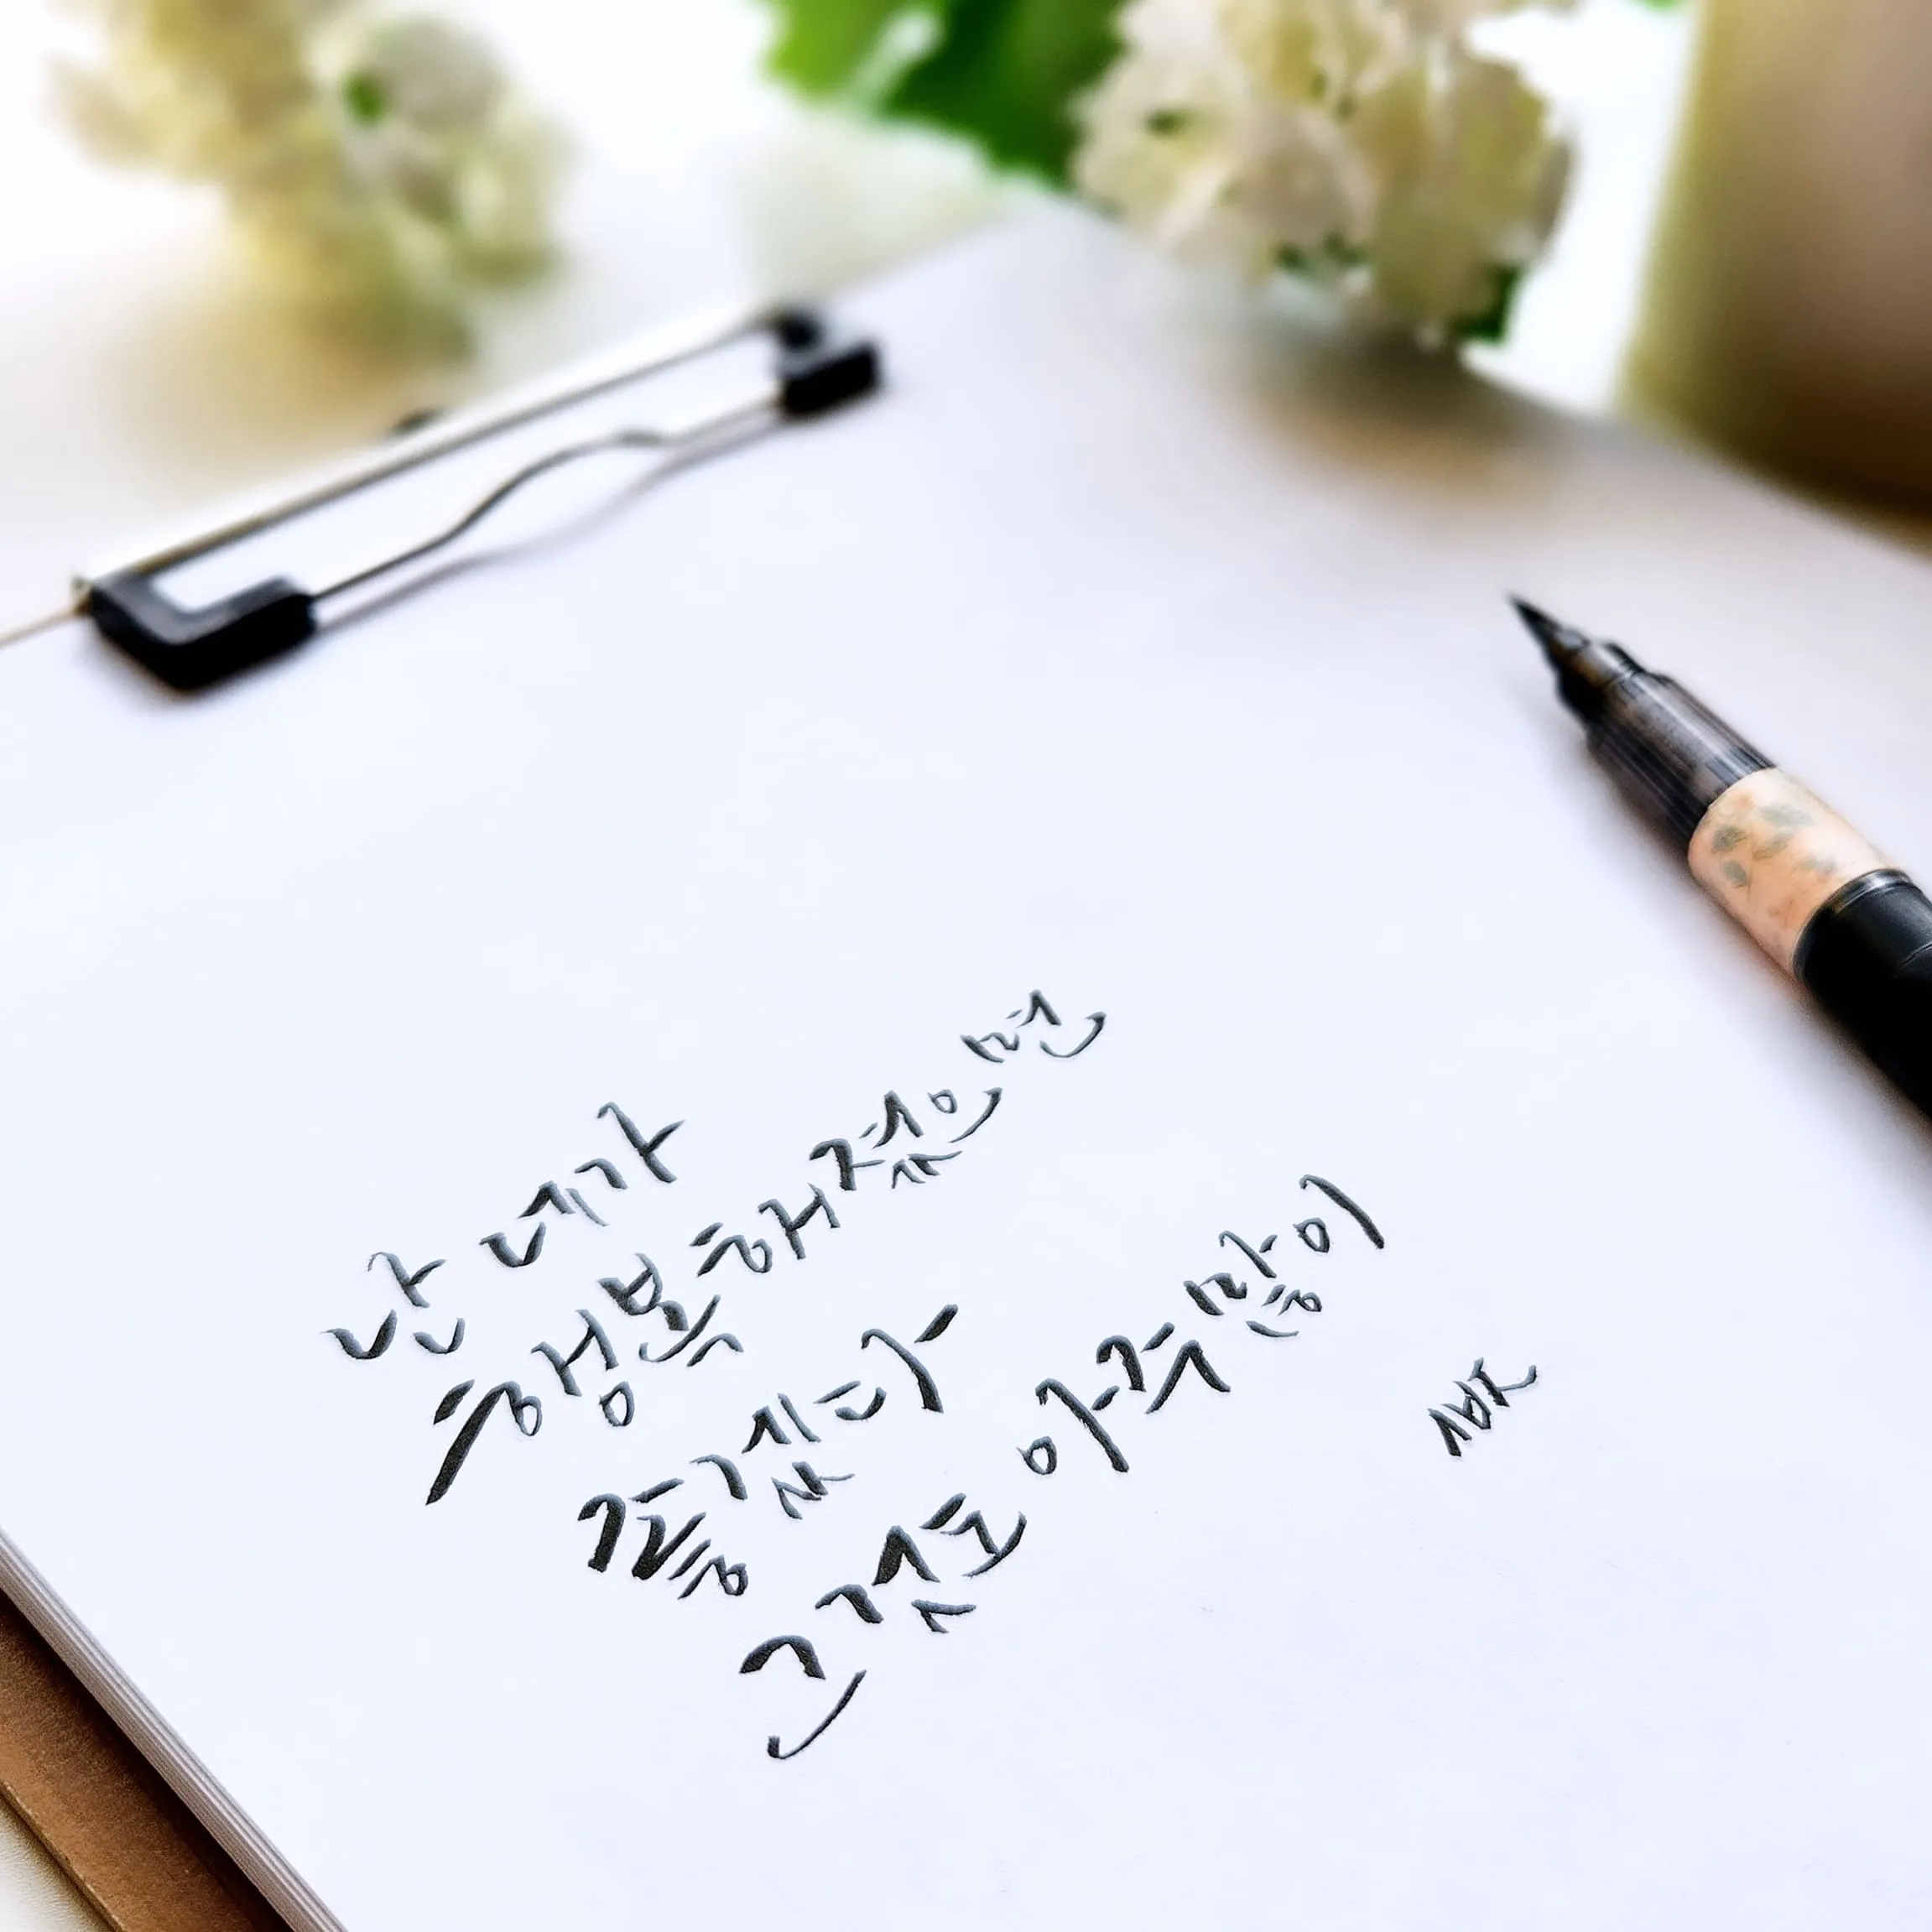 난 네가
행복해졌으면
좋겠다
그것도 아주 많이